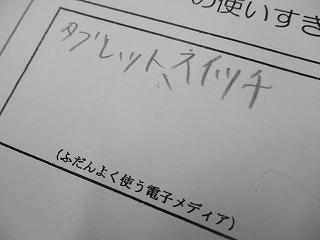 の使いすぎ
タブレット、スイッチ
(ふだんよく使う電子メディア)